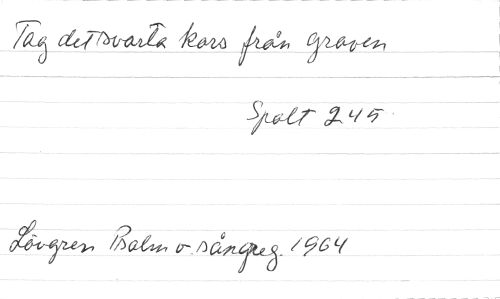 Tag det svarta kors från graven
Spalt 245
Lövgren Psalm o. sångreg. 1964